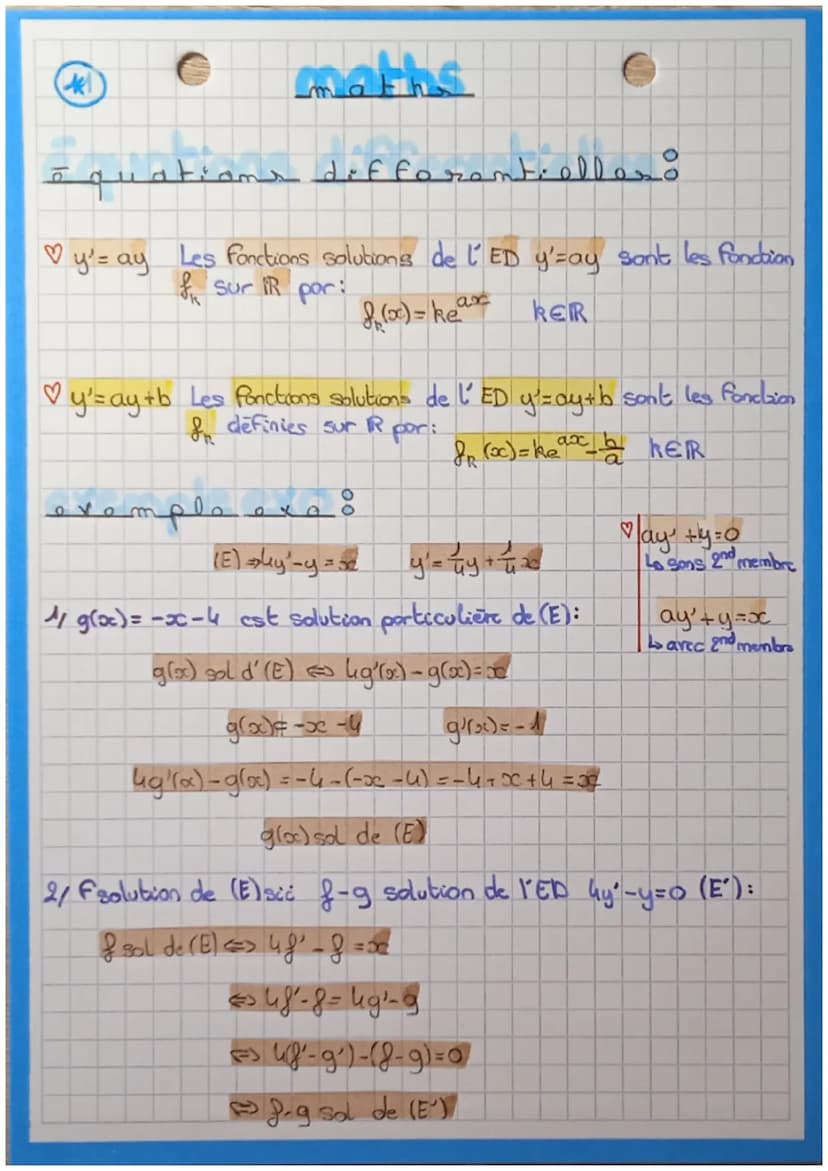 *1
maths
Équations différentielles :
♡ y'= ay Les fonctions solutions de l'ED y'=ay sont les fonction
fₖ sur ℝ par :
fₖ(x) = ke^{ax} k∈ℝ
♡ y'=ay+b Les fonctions solutions de l'ED y'=ay+b sont les fonction
fₖ définies sur ℝ par :
fₖ(x)=ke^{ax} - b/a k∈ℝ
exemple exo :
(E) ⇒ 4y'-y = x y'= 1/4 y + 1/4 x
♡ ay' + y = 0
↳ sans 2nd membre
ay' + y = x
↳ avec 2nd membre
1/ g(x) = -x-4 est solution particulière de (E) :
g(x) sol d'(E) ⇔ 4g'(x) - g(x) = x
g(x) = -x -4 g'(x) = -1
4g'(x) - g(x) = -4 - (-x -4) = -4 + x + 4 = x
g(x) sol de (E)
2/ f solution de (E) sii f-g solution de l'ED 4y'-y=0 (E') :
f sol de (E) ⇔ 4f' - f = x
⇔ 4f' - f = 4g' - g
⇔ 4(f'-g') - (f-g) = 0
⇔ f-g sol de (E')